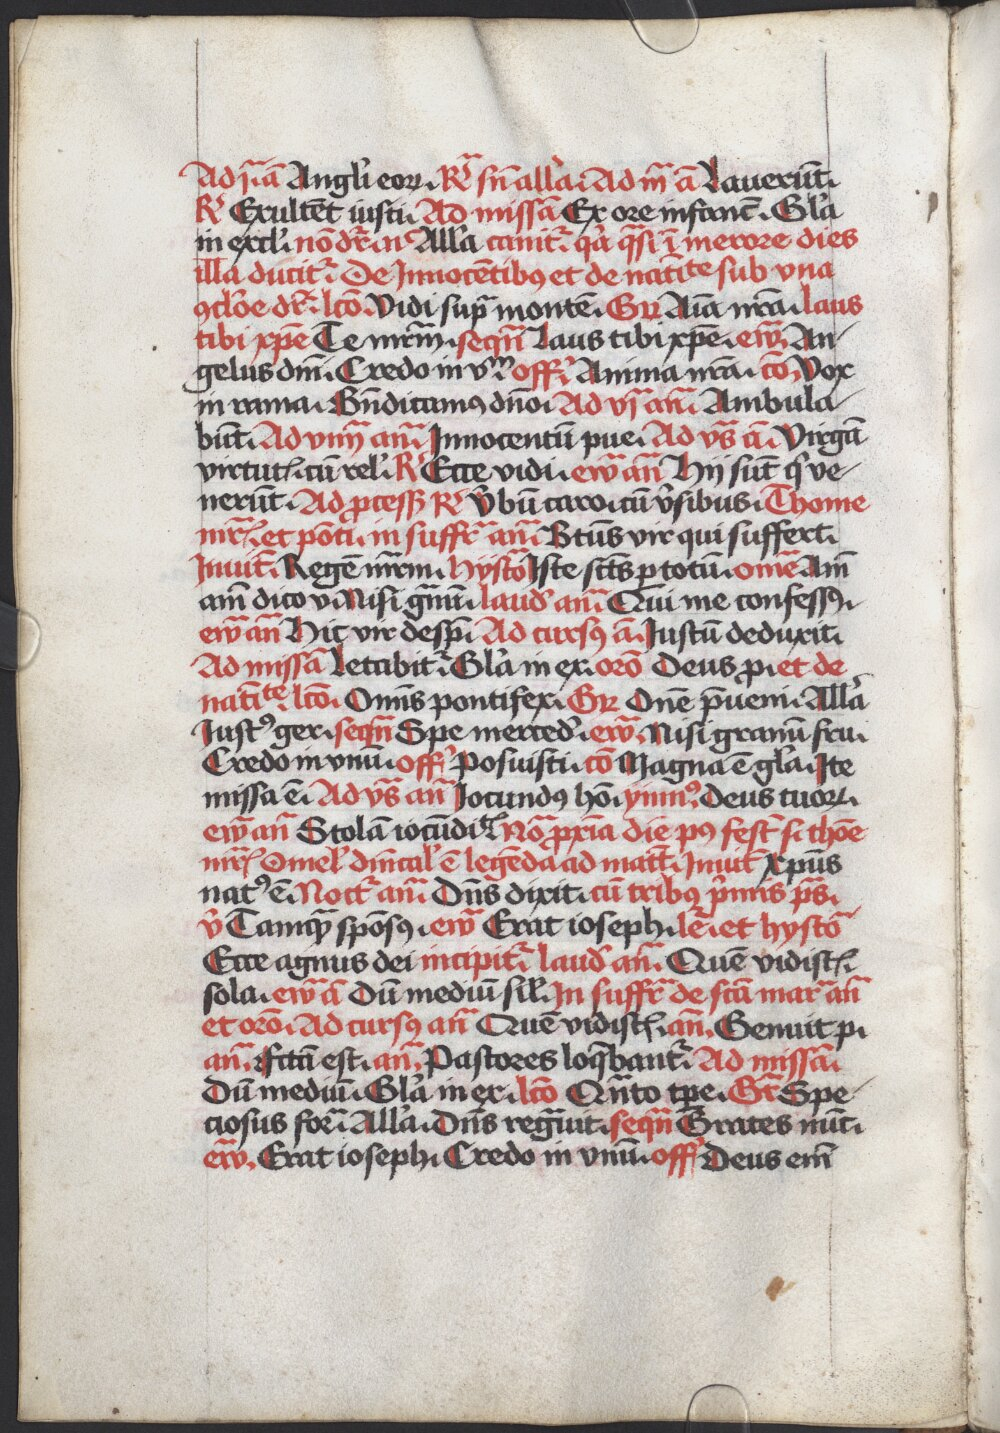 Ad j̄ā ā Angl'i eoꝝ. R' sn̄ all'a. Ad iij̄ ā Laverūt.
R' Exultēt iusti. Ad missā Ex ore infant̄. Gl'a
in excl'. nō dr̄. n' All'a canit̄. q'a q̄si ī merore dies
illa ducit̄. De Innocētibꝰ et de natīte sub vna
ꝯcl'oe dr̄. lcō. Vidi sup̄ montē. Gꝝ Aīa nr̄a. laus
tibi xp̄e Te mr̄m. seqn̄ Laus tibi xp̄e. ew̄. An-
gelus dn̄i. Credo in vnᵐ. off' Anima nr̄a. cō. Vox
in rama. Bn̄dicamꝰ dn̄o. Ad vj̄ an̄. Ambula-
būt. Ad viiij an̄. Innocentū pue. Ad vs̄ ā. Virgā
virtut̄. cū rel'. R' Ecce vidi. ew̄ an̄ Hij sūt q' ve-
nerūt. Ad ꝓcess̄ R' V'bū caro. cū v'sibus. Thome
mr̄. et pōti. in suffr̄ an̄. Btūs vir qui suffert.
Inuit̄. Regē mr̄m. hystō Iste sct̄s ꝑ totū. omē Am̄
am̄ dico v. Nisi gᵃnū. laud' an̄. Qui me confessꝰ.
ew̄ an̄ Hic vir desp̄. Ad cursꝰ ā. Iustū deduxit.
Ad missā Letabit̄. Gl'a in ex. orō Deus ꝓ. et de
natīte lcō. Om̄s pontifex. Gꝝ Dn̄e p̄ueni. All'a
Iustꝰ ger. seqn̄ Spe merced'. ew̄. Nisi granū fru.
Credo in vnū. off' Posuisti. cō Magna ē gl'a. Ite
missa ē. Ad vs̄ an̄ Iocundꝰ hō. ymnꝰ. Deus tuoꝝ.
ew̄ an̄ Stolā iocūdit̄. Nō ꝓxīa die pꝰ fest̄ s' thōe
mr̄. Omel' dn̄ical' ē legēda ad matt̄. Inuit̄ Xpūs
natꝰ ē. Noct̄ an̄. Dn̄s dixit. cū tribꝰ p'mis ps̄.
v' Tamq̄ spōsꝰ. ew̄ Erat ioseph. lc̄. et hystō
Ecce agnus dei incipit̄. laud' an̄. Quē vidist̄.
sola. ew̄ ā Dū mediū sil'. In suffr̄ de sctā mar̄ an̄
et orō. Ad cursꝰ an̄ Quē vidist̄. an̄. Genuit p.
an̄. Fctū est. an̄. Pastores loq̄bant̄. Ad missā.
Dū mediū. Gl'a in ex. lcō Qn̄to tp̄e. Gr̄ Spe-
ciosus for̄. All'a. Dn̄s regᵃuit. seqn̄ Grates nūc.
ew̄. Erat ioseph. Credo in vnū. off' Deus em̄